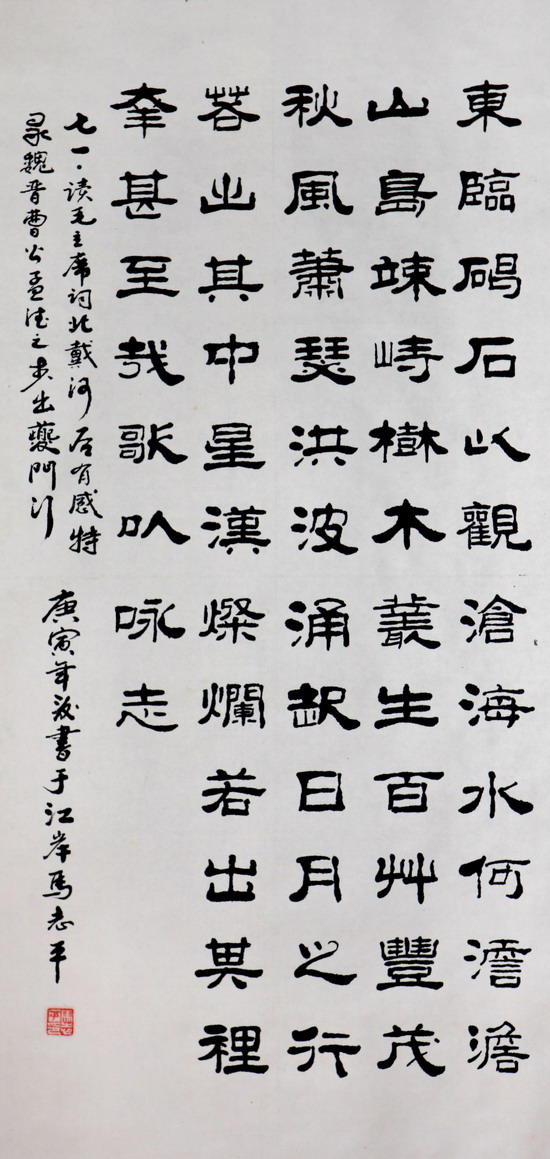 東臨碣石以觀滄海水何澹澹
山島竦峙樹木叢生百艸豐茂
秋風蕭瑟洪波涌起日月之行
若出其中星漢燦爛若出其裡
幸甚至哉歌以咏志
七一·读毛主席词北戴河后有感特
录魏晋曹公孟德之步出夔門行
庚寅年書于江岸馬志平